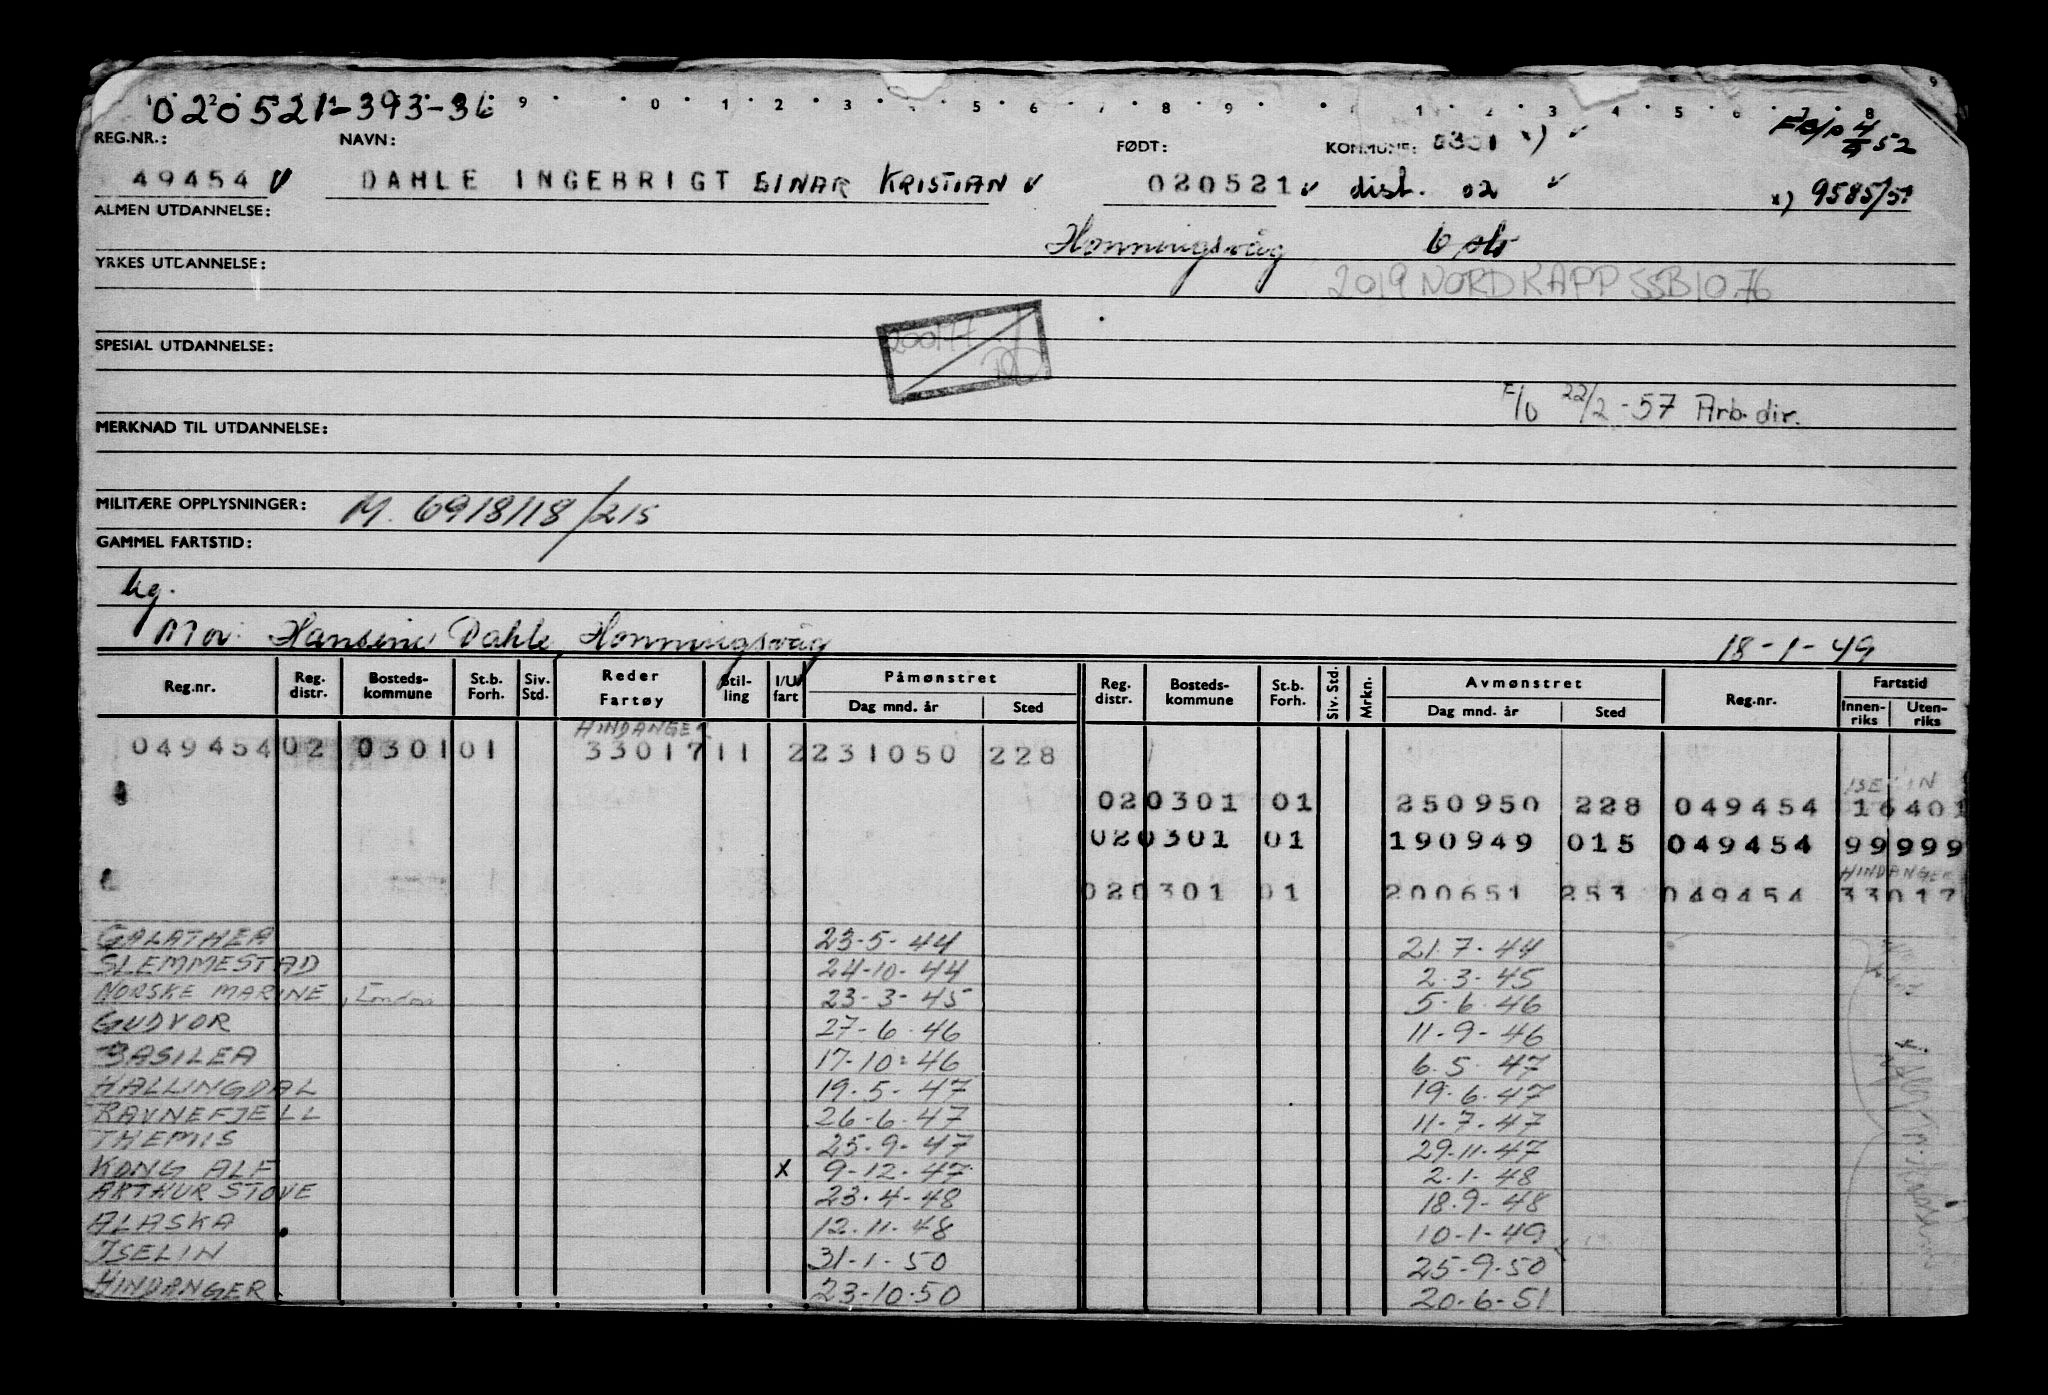 020521-393-36
9 0 1 2 3 5 6 7 8 9 1 2 3 4 5 6 7 8
REG.NR.: NAVN: FØDT: KOMMUNE: 0301 x) ✓
49454 ✓ DAHLE INGEBRIGT EINAR KRISTIAN ✓ 020521 ✓ dist. 02 ✓ x) 9585/51
ALMEN UTDANNELSE:
Honningsvåg Oslo
YRKES UTDANNELSE:
2019 NORDKAPP SSB 10.76
200177
SPESIAL UTDANNELSE:
F/O 22/2-57 Arb.dir.
MERKNAD TIL UTDANNELSE:
MILITÆRE OPPLYSNINGER: M. 6918118/215
GAMMEL FARTSTID:
ug.
Mor: Hansine Dahle, Honningsvåg 18-1-49
Reg.nr. Reg. distr. Bosteds-kommune St.b. Forh. Siv. Std. Reder Fartøy Stil-ling I/U fart Påmønstret Dag mnd. år Sted Reg. distr. Bosteds-kommune St.b. Forh. Siv. Std. Mrkn. Avmønstret Dag mnd. år Sted Reg.nr. Fartstid Innen-riks Uten-riks
HINDANGER
049454 02 0301 01 33017 11 2 231050 228
ISELIN
02 0301 01 250950 228 049454 16401
02 0301 01 190949 015 049454 99999
HINDANGER
02 0301 01 200651 253 049454 33017
GALATHEA 23-5-44 21.7.44
SLEMMESTAD 24-10-44 2.3.45
NORSKE MARINE, London 23-3-45 5.6.46
GUDVOR 27-6.46 11-9-46
BASILEA 17-10-46 6.5.47
HALLINGDAL 19.5-47 19.6.47
RAVNEFJELL 26-6.47 11-7-47
THEMIS 25-9-47 29.11.47
KONG ALF X 9-12-47 2.1-48
ARTHUR STOVE 23.4-48 18.9-48
ALASKA 12.11.48 10-1-49
ISELIN 31-1-50 25-9-50
HINDANGER 23-10.50 20-6-51